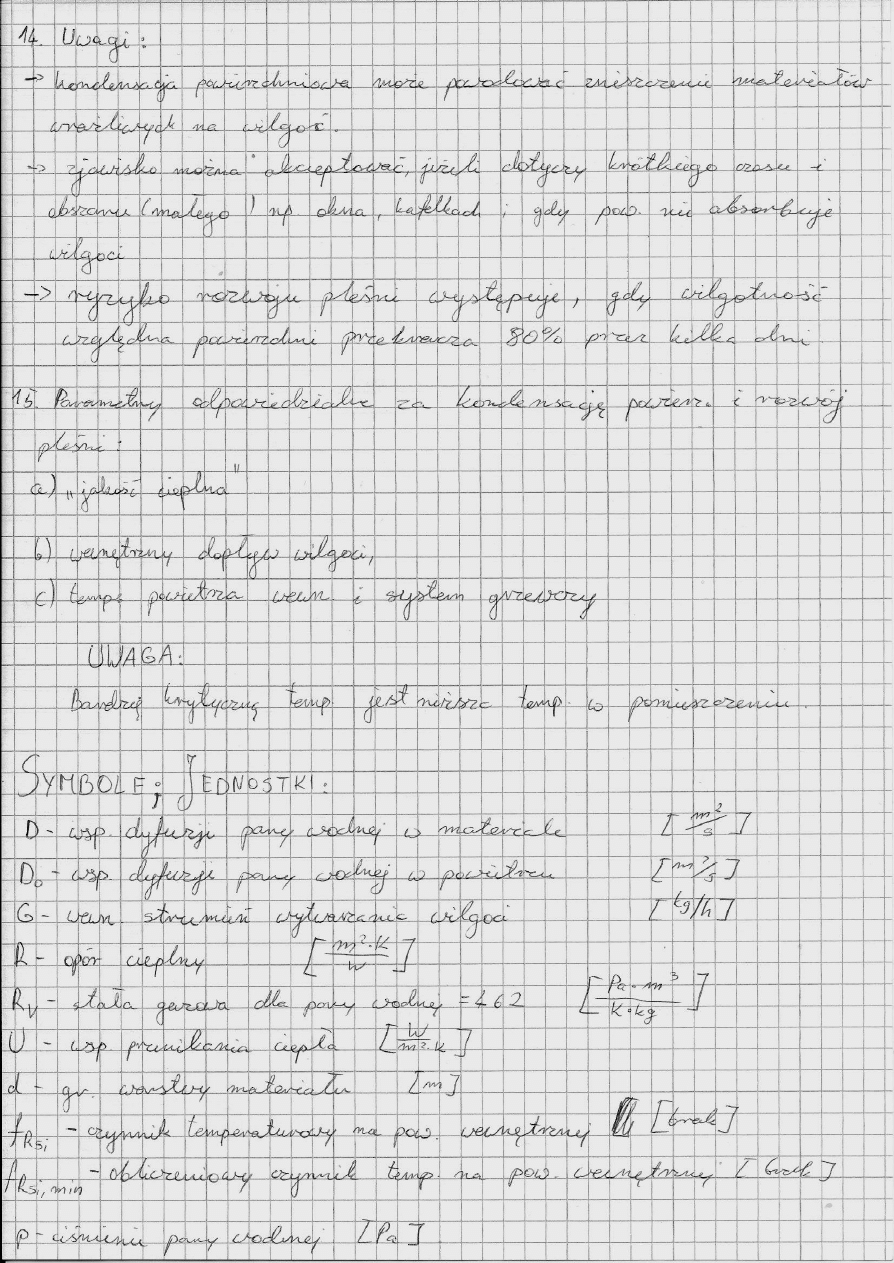 14. Uwagi:
→ kondensacja powierzchniowa może powodować zniszczenie materiałów
wrażliwych na wilgoć.
→ zjawisko można akceptować, jeżeli dotyczy krótkiego czasu i
obszaru (małego) np okna, kafelkach i gdy pow. nie absorbuje
wilgoci
→ ryzyko rozwoju pleśni występuje, gdy wilgotność
względna powierzchni przekracza 80% przez kilka dni
15. Parametry odpowiedzialne za kondensację powierz. i rozwój
pleśni:
a) „jakość cieplna"
b) wewnętrzny dopływ wilgoci,
c) temp. powietrza wewn. i system grzewczy
UWAGA:
Bardziej krytyczną temp. jest niższa temp. w pomieszczeniu.
SYMBOLE; JEDNOSTKI:
D - wsp. dyfuzji pary wodnej w materiale [m²/s]
D₀ - wsp. dyfuzji pary wodnej w powietrzu [m²/s]
G - wewn. strumień wytwarzania wilgoci [kg/h]
R - opór cieplny [m²·K/W]
Rv - stała gazowa dla pary wodnej = 462 [Pa·m³/K·kg]
U - wsp przenikania ciepła [W/m²·K]
d - gr. warstwy materiału [m]
fRsi - czynnik temperaturowy na pow. wewnętrznej [brak]
fRsi, min - obliczeniowy czynnik temp. na pow. wewnętrznej [brak]
p - ciśnienie pary wodnej [Pa]